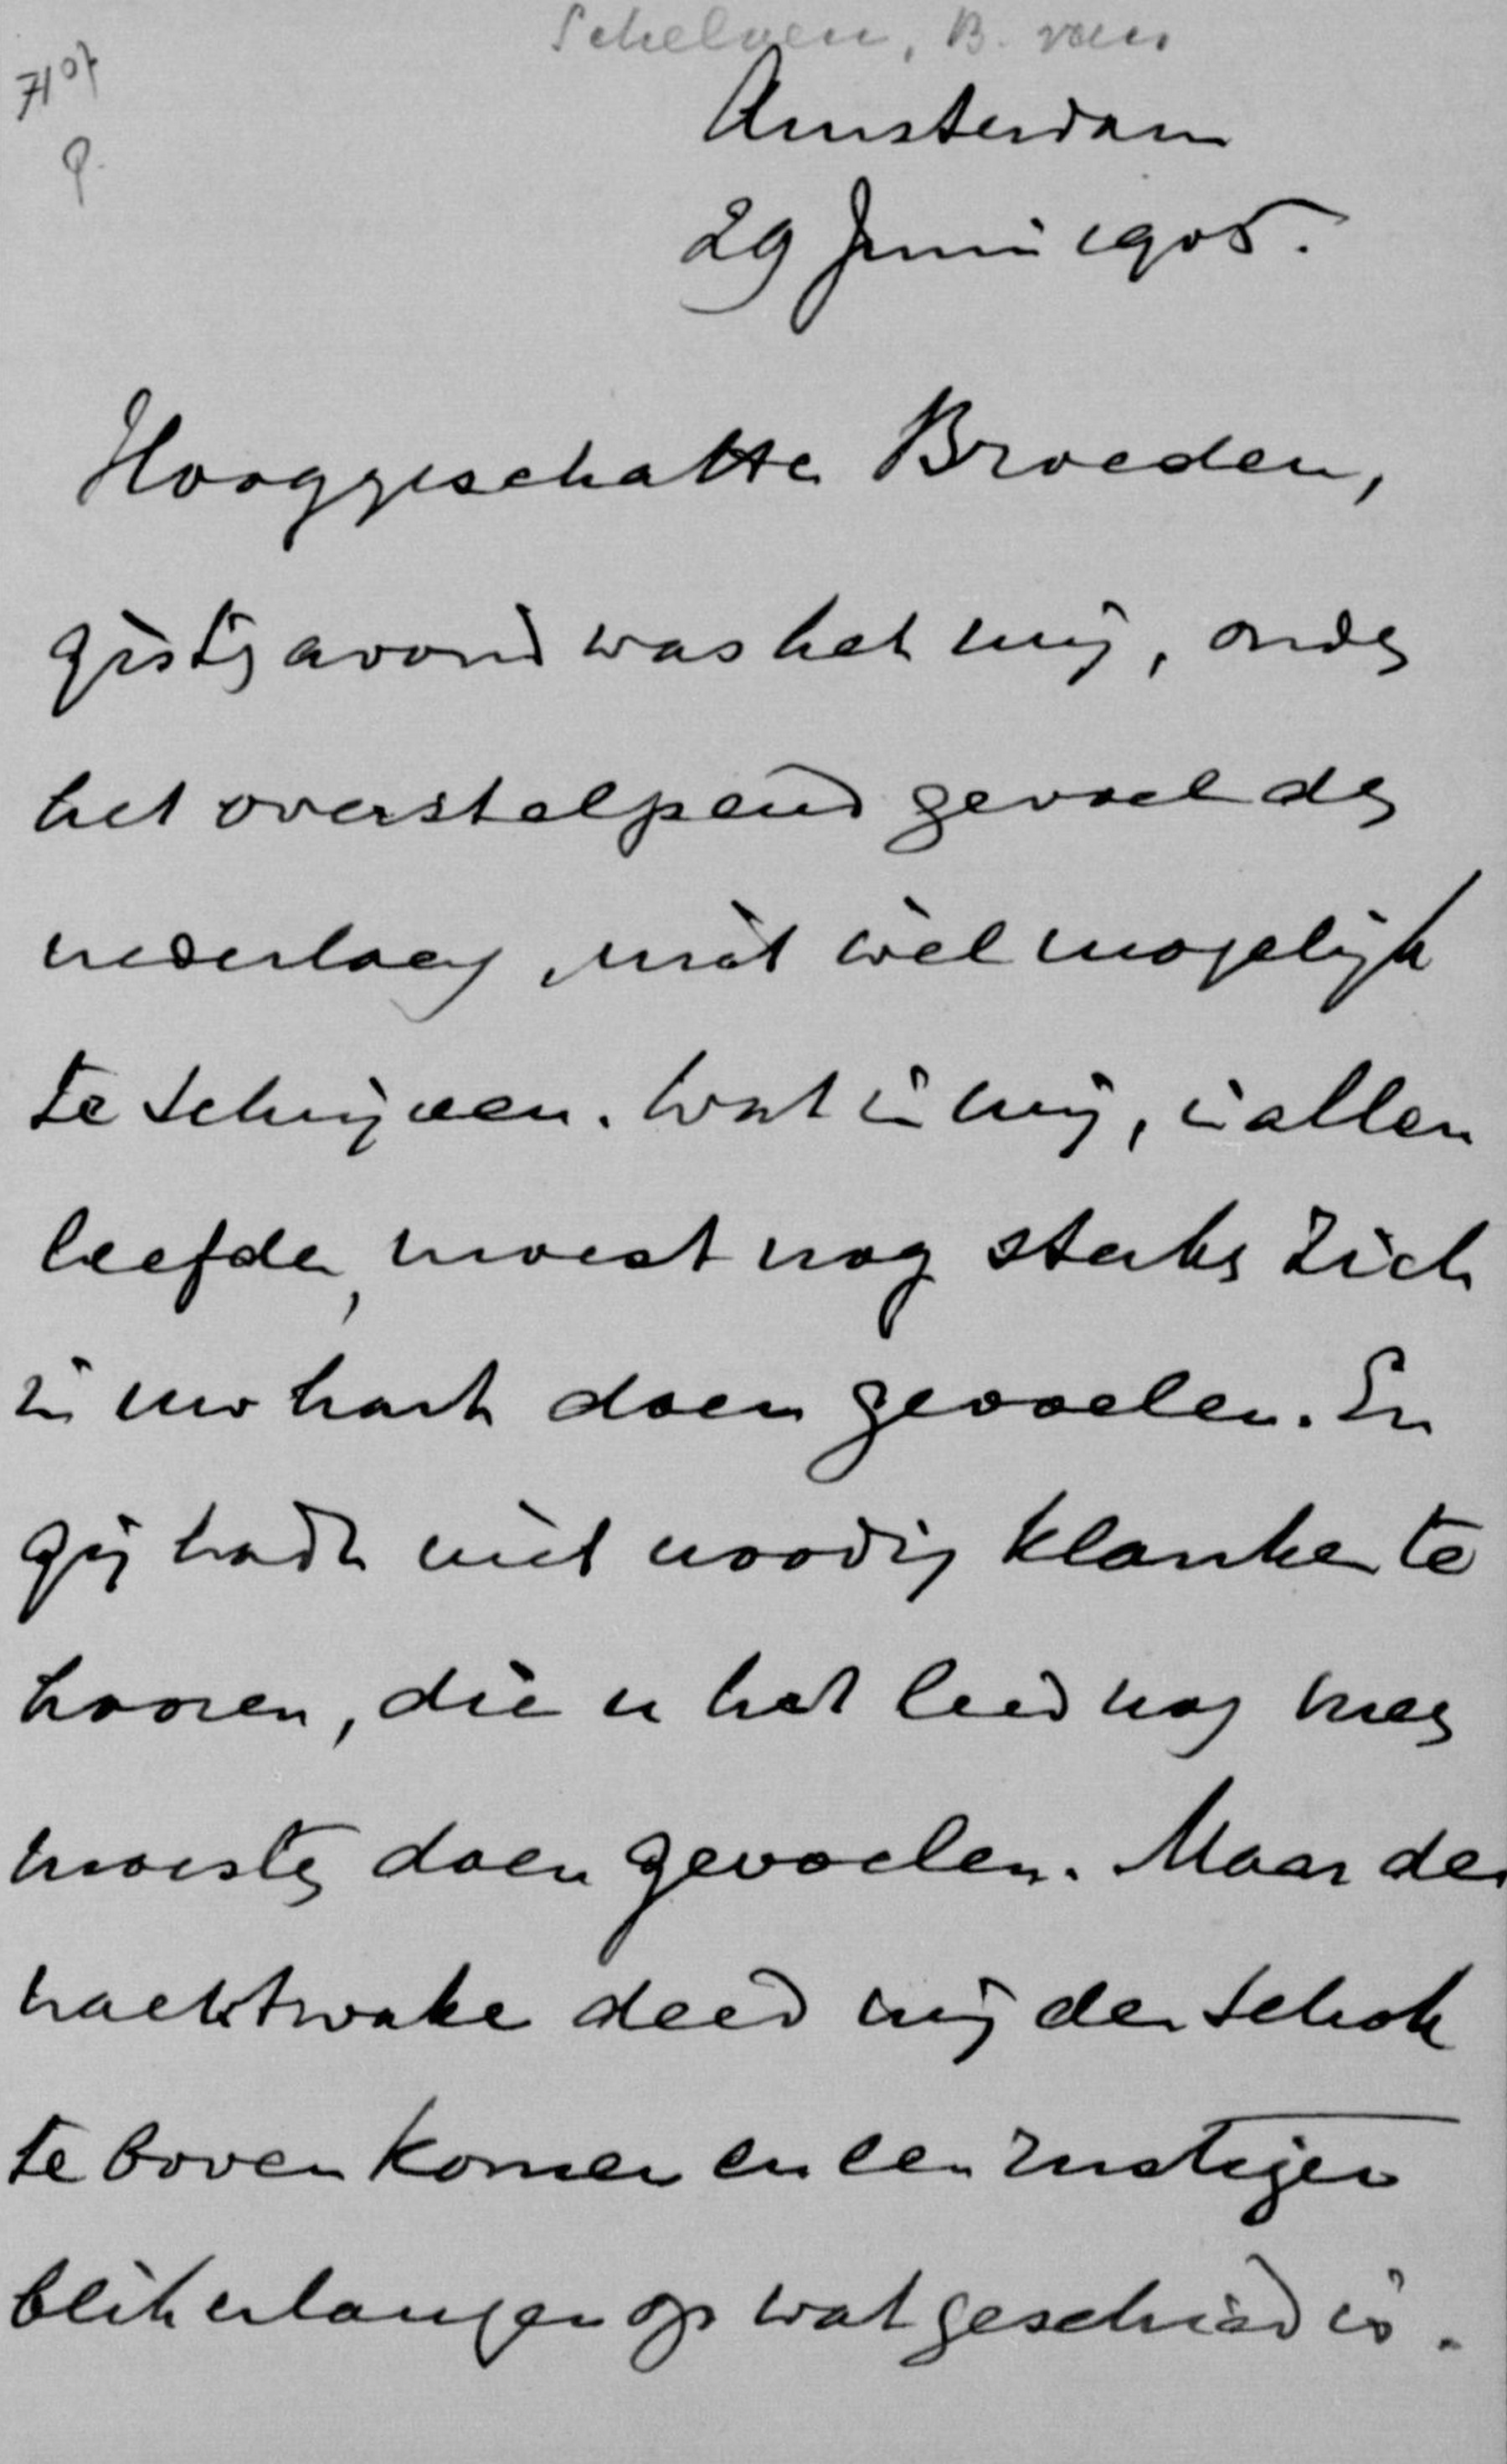 Schelven, B. van
Amsterdam
29 Juni 1905.
Hooggeschatte Broeder,
gister avond was het mij, onder
het overstelpend gevoel der
nederlaag, niet wel mogelijk
te schrijven. Wat in mij, in allen
leefde, moest nog sterker zich
in uw hart doen gevoelen. En
gij hadt niet noodig klanken te
hooren, die u het leed nog meer
moesten doen gevoelen. Maar de
nachtwake deed mij den schok
te boven komen en een rustigen
blik erlangen op wat geschied is.